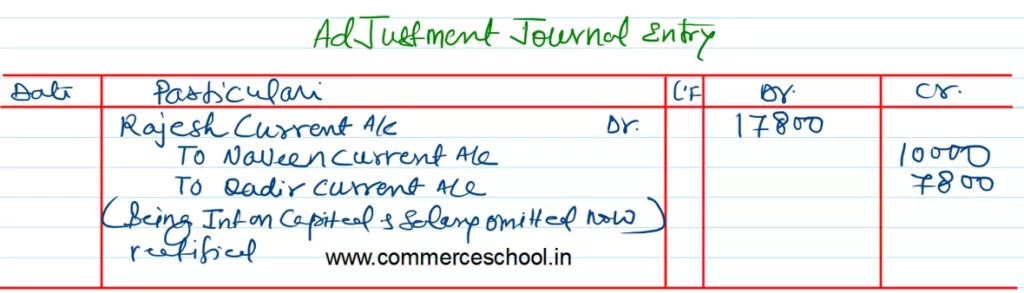 AdJustment Journal Entry
Date Particulars L'F Dr. Cr.
Rajesh Current A/c Dr. 17800
To Naveen Current A/c 10000
To Qadir Current A/c 7800
(Being Int on Capital & Salary omitted now)
rectified www.commerceschool.in